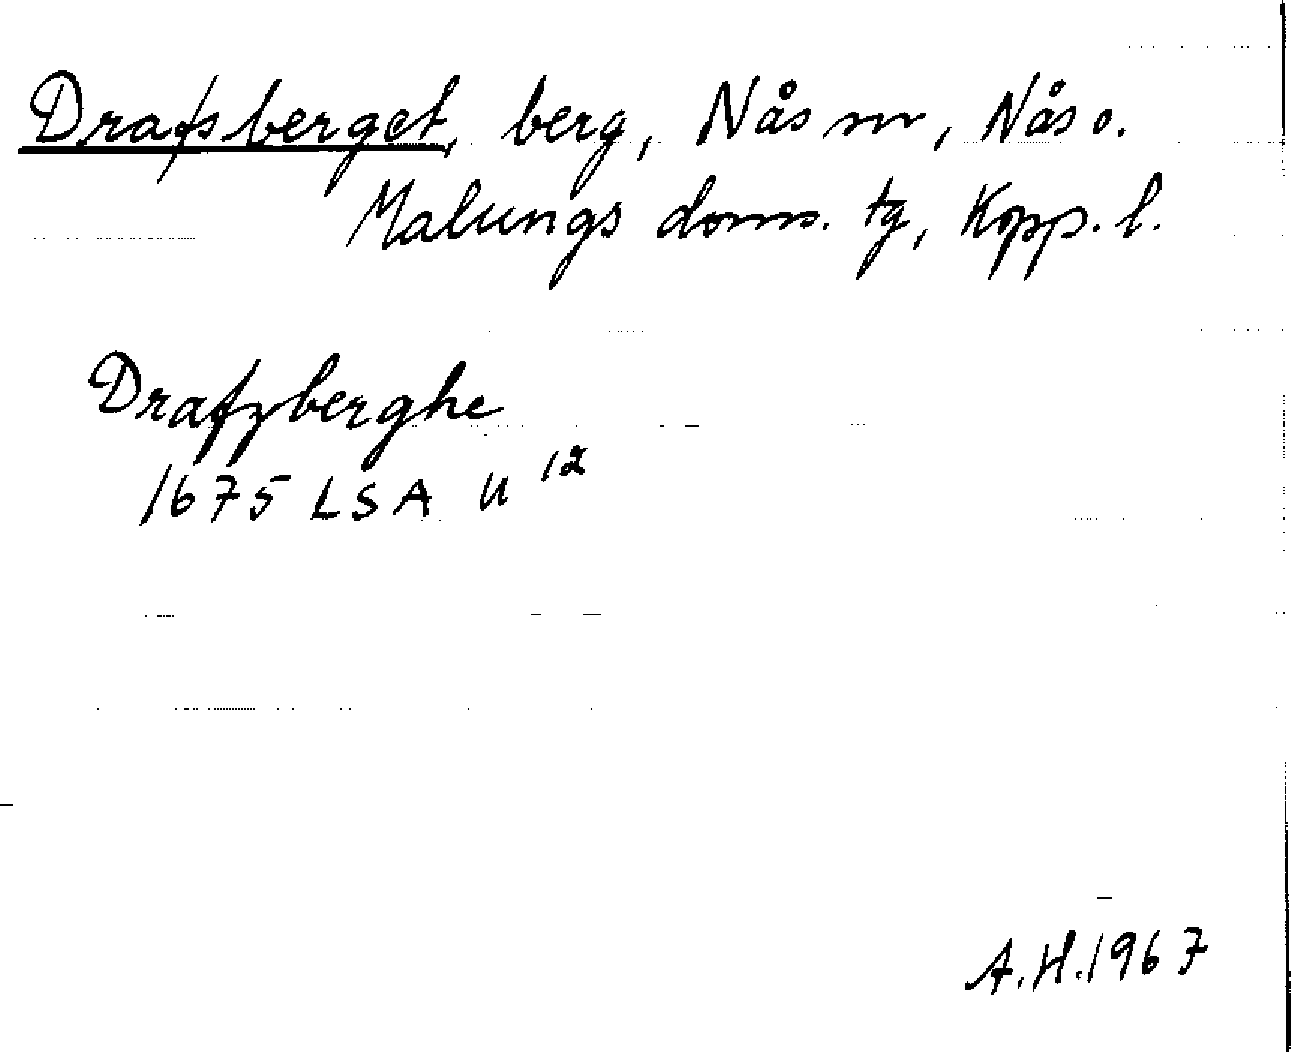 Drafsberget, berg, Nås sn, Nås o.
Malungs doms. tg, Kopp. l.
Drafzberghe
1675 LSA U 12
A.H. 1967